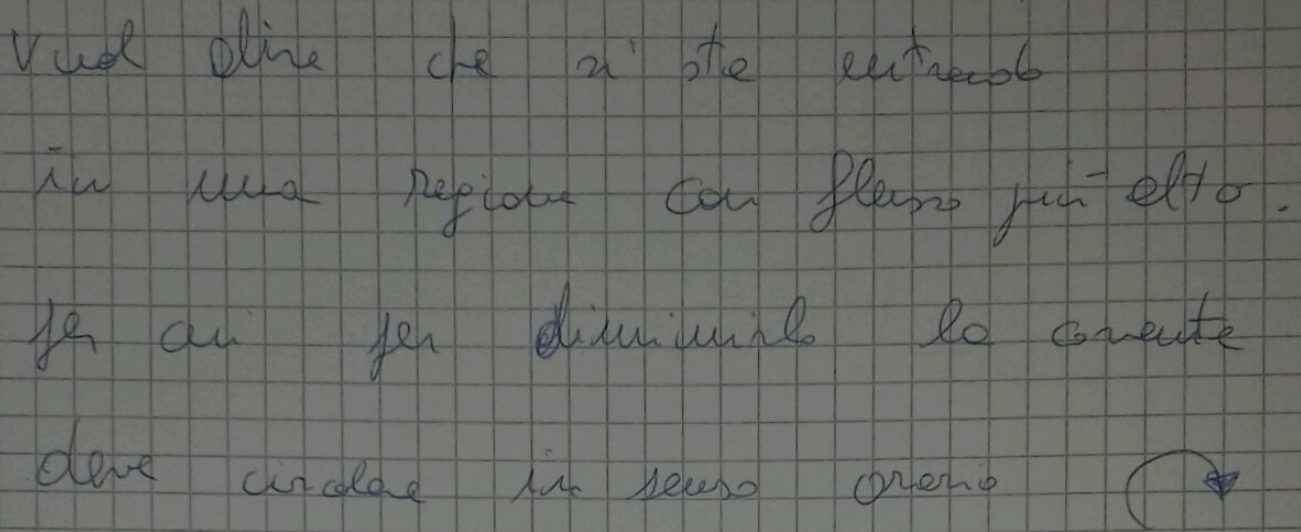 Vuol dire che si sta entrando
in una regione con flusso più alto.
Per cui per diminuirlo la corrente
deve circolare in senso orario